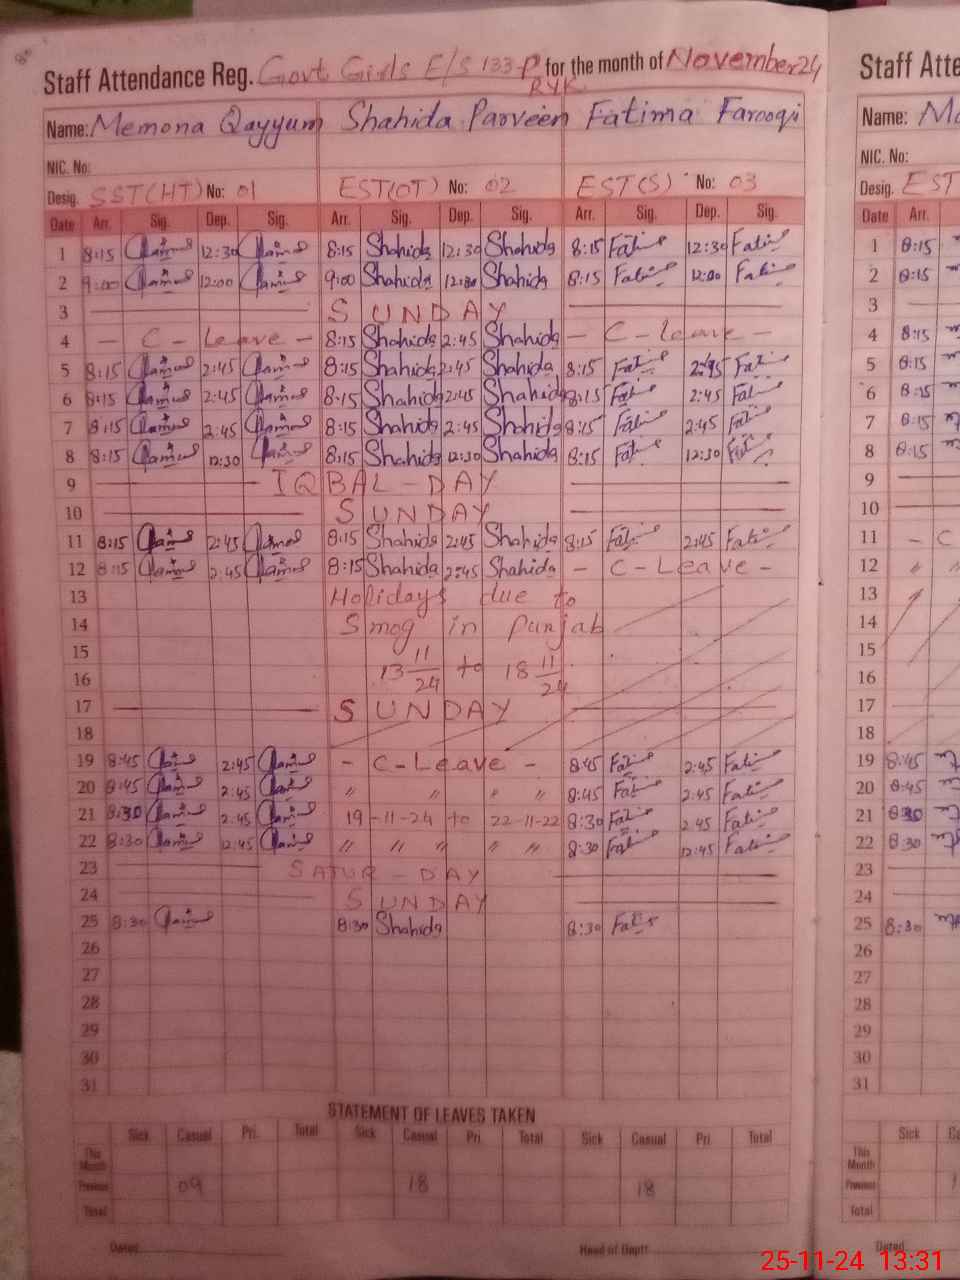 Staff Attendance Reg. Govt Girls E/S 133-P RYK for the month of November 24
Name: Memona Qayyum Shahida Parveen Fatima Farooqi
NIC. No:
Desig. SST(HT) No: 01 EST(OT) No: 02 EST(S) No: 03
Date Arr. Sig. Dep. Sig. Arr. Sig. Dep. Sig. Arr. Sig. Dep. Sig.
1 8:15 12:30 8:15 Shahida 12:30 Shahida 8:15 12:30
2 9:00 12:00 9:00 Shahida Shahida 8:15 12:00
3 SUNDAY
4 - C - Leave - 8:15 Shahida 2:45 Shahida - C - leave -
5 8:15 2:45 8:15 Shahida 2:45 Shahida 8:15 2:45
6 8:15 2:45 8:15 Shahida 2:45 Shahida 8:15 2:45
7 8:15 2:45 8:15 Shahida 2:45 Shahida 8:15 2:45
8 8:15 12:30 8:15 Shahida 12:30 Shahida 8:15 12:30
9 IQBAL - DAY
10 SUNDAY
11 8:15 2:45 8:15 Shahida 2:45 Shahida 8:15 2:45
12 8:15 2:45 8:15 Shahida 2:45 Shahida - C - Leave -
13 Holidays due to
14 Smog in Punjab
15 13 11/24 to 18 11/24
16
17 SUNDAY
18
19 8:45 2:45 - C - Leave - 8:45 2:45
20 8:45 2:45 " " " " 8:45 2:45
21 8:30 2:45 19-11-24 to 22-11-22 8:30 2:45
22 8:30 12:45 " " " " " 8:30 12:45
23 SATUR - DAY
24 SUNDAY
25 8:30 8:30 Shahida 8:30
26
27
28
29
30
31
STATEMENT OF LEAVES TAKEN
Sick Casual Pri. Total Sick Casual Pri Total Sick Casual Pri. Total
This Month
Previous 09 18 18
Total
Dated Head of Deptt
Staff Atte
Name:
NIC. No:
Desig. EST
Date Arr.
1 8:15
2 8:15
3
4 8:15
5 8:15
6 8:15
7 8:15
8 8:15
9
10
11 - C
12 " "
13
14
15
16
17
18
19 8:45
20 8:45
21 8:30
22 8:30
23
24
25 8:30
26
27
28
29
30
31
Sick
This Month
Previous
Total
Dated
25-11-24 13:31